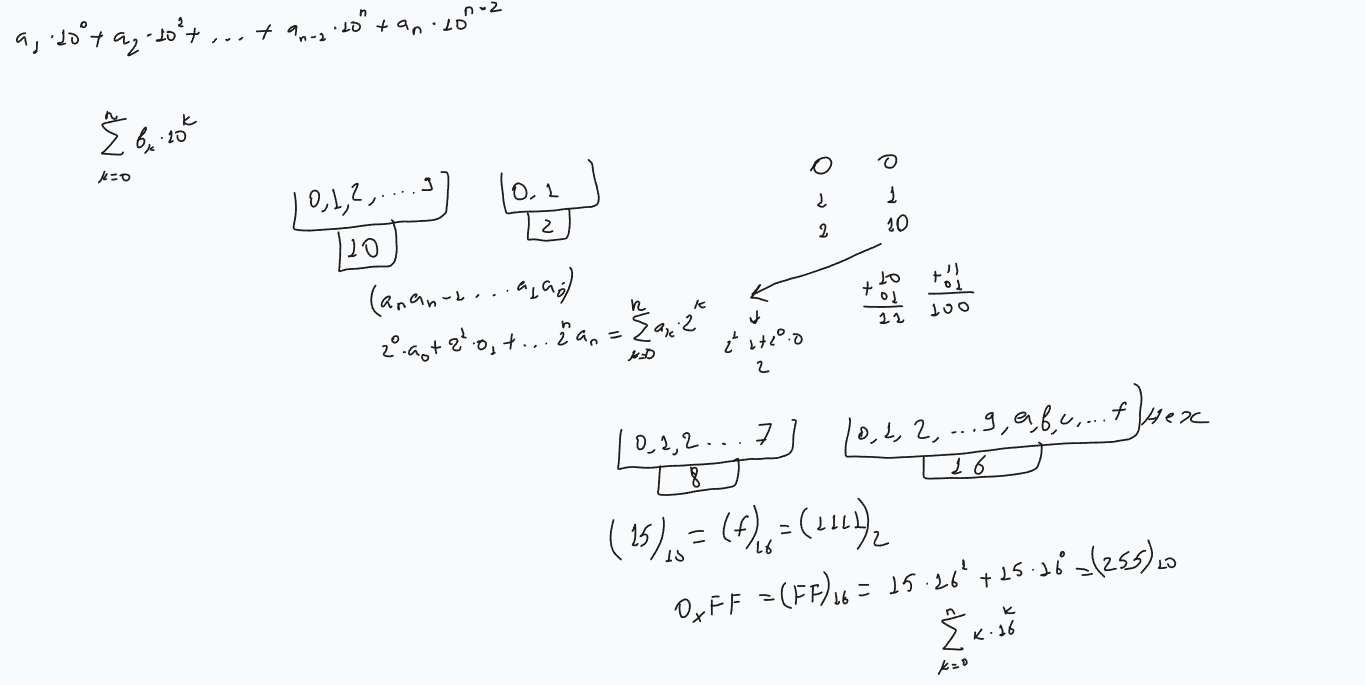 a₁·10⁰ + a₂·10² + ... + aₙ₋₂·10ⁿ + aₙ·10ⁿ⁻²
n
∑ bₖ·10ᵏ
k=0
0,1,2,....9
10
0,1
2
0 0
1 1
2 10
(aₙaₙ₋₁...a₁a₀)
2⁰·a₀ + 2¹·a₁ + ... 2ⁿaₙ = ∑ aₖ·2ᵏ
n
k=0
2¹ 1+2⁰·0
2
+10
01
11
+11
01
100
0,1,2...7
8
0,1,2,...9,a,b,c,...f Hex
16
(15)₁₀ = (f)₁₆ = (1111)₂
0xFF = (FF)₁₆ = 15·16¹ + 15·16⁰ = (255)₁₀
n
∑ k·16ᵏ
k=0